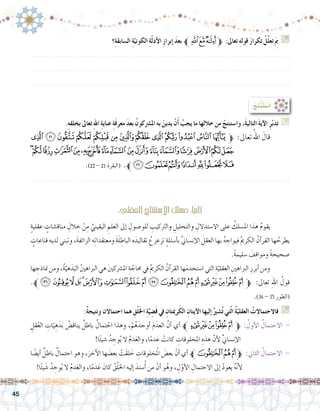 بِمَ تعلّل تكرارَ قوله تعالى: ﴿ أَءِلَٰهٌ مَّعَ ٱللَّهِ ﴾ بعدَ إبرازِ الأدلّة الكونيّة السابقة؟
أستنتج
تدبّر الآية التالية، واستنتج من خلالها ما يجبُ أن يدين به المشركون بعدَ معرفة عناية الله تعالى بخلقه.
قال الله تعالى: ﴿ يَٰٓأَيُّهَا ٱلنَّاسُ ٱعْبُدُوا۟ رَبَّكُمُ ٱلَّذِى خَلَقَكُمْ وَٱلَّذِينَ مِن قَبْلِكُمْ لَعَلَّكُمْ تَتَّقُونَ ٢١ ٱلَّذِى
جَعَلَ لَكُمُ ٱلْأَرْضَ فِرَٰشًا وَٱلسَّمَآءَ بِنَآءً وَأَنزَلَ مِنَ ٱلسَّمَآءِ مَآءً فَأَخْرَجَ بِهِۦ مِنَ ٱلثَّمَرَٰتِ رِزْقًا لَّكُمْ
فَلَا تَجْعَلُوا۟ لِلَّهِ أَندَادًا وَأَنتُمْ تَعْلَمُونَ ٢٢ ﴾. (البقرة 21 – 22).
ثانيا: مسلك الاستنتاج العقلي:
يقوم هذا المسلك على الاستدلال والتحليل والتركيب للوصول إلى العلم اليقينيّ من خلال مناقشات عقلية
يطرحُها القرآنُ الكريمُ فيواجهُ بها العقل الإنسانيّ بأسئلة تزعزعُ تقاليده الباطلة ومعتقداته الزائفة، وتبني لديه قناعات
صحيحة ومواقف سليمة.
ومن أبرز البراهين العقليّة التي استخدمها القرآنُ الكريمُ في محاجّة المشركين هي البراهينُ البَدَهيّةُ، ومن نماذجها
قولُ الله تعالى: ﴿ أَمْ خُلِقُوا۟ مِنْ غَيْرِ شَىْءٍ أَمْ هُمُ ٱلْخَٰلِقُونَ ٣٥ أَمْ خَلَقُوا۟ ٱلسَّمَٰوَٰتِ وَٱلْأَرْضَ بَل لَّا يُوقِنُونَ ٣٦ ﴾.
(الطور 35 – 36).
فالاحتمالاتُ العقليّة التي تُشيرُ إليها الآيتان الكريمتان في قضيّة الخلق هما احتمالان ونتيجةٌ:
– الاحتمالُ الأوّلُ: ﴿ أَمْ خُلِقُوا۟ مِنْ غَيْرِ شَىْءٍ ﴾ أي أنّ العدمَ أوجدَهُم، وهذا احتمالٌ باطلٌ يناقضُ بَدَهيّات العقل
الإنسانيّ لأنّ هذه المخلوقات كانت عدمًا، والعدمُ لا يوجدُ شيئًا!
– الاحتمالُ الثاني: ﴿ أَمْ هُمُ ٱلْخَٰلِقُونَ ﴾ أي أنّ بعضَ المخلوقات خلقتْ بعضها الآخر، وهو احتمالٌ باطلٌ أيضًا
لأنّه يعودُ إلى الاحتمال الأوّل، وهو أنّ من أُسندَ إليه الخلقُ كان عدمًا، والعدمُ لا يوجدُ شيئًا!
45